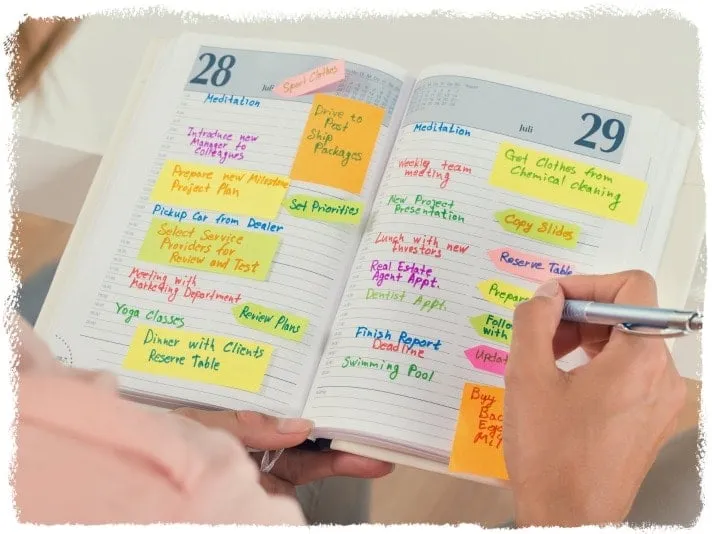 28
Juli
Sport Clothes
Meditation
Drive to
Post
Ship
Packages
Introduce new
Manager to
Colleagues
Prepare new Milestone
Project Plan
Set Priorities
Pickup Car from Dealer
Select Service
Providers for
Review and Test
Meeting with
Marketing Department
Review Plans
Yoga Classes
Dinner with Clients
Reserve Table
Juli
29
Meditation
Get Clothes from
Chemical cleaning
Weekly team
meeting
New Project
Presentation
Copy Slides
Lunch with new
Investors
Reserve Table
Real Estate
Agent Appt.
Prepare
Dentist Appt.
with
Finish Report
Deadline
Swimming Pool
Buy